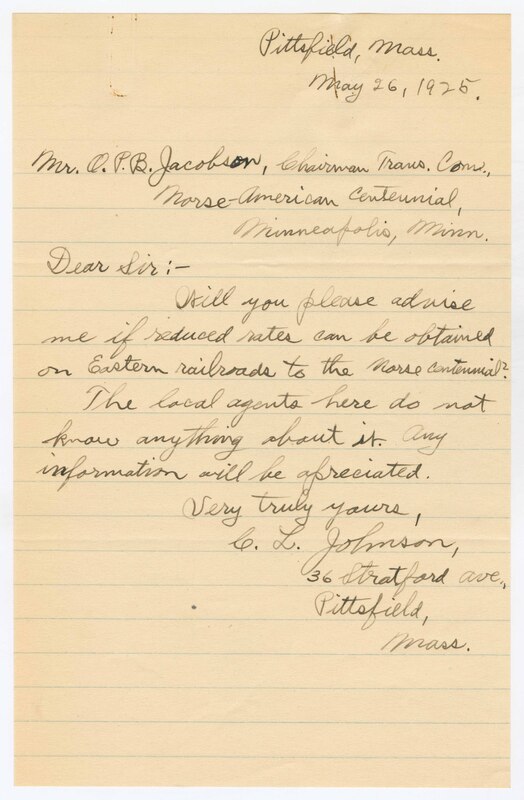 Pittsfield, Mass.
May 26, 1925.
Mr. O.P.B. Jacobson, Chairman Trans. Com.,
Norse-American Centennial,
Minneapolis, Minn.
Dear Sir:-
Will you please advise
me if reduced rates can be obtained
on Eastern railroads to the Norse centennial?
The local agents here do not
know anything about it. Any
information will be apreciated.
Very truly yours,
C. L. Johnson,
36 Stratford ave.,
Pittsfield,
Mass.